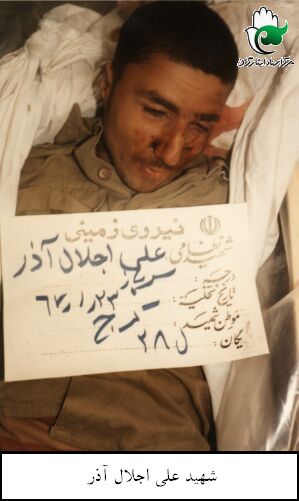 مرکز اسناد ایثارگران
نیروی زمینی
شهید نظامی علی اجلال آذر
درجه: سرباز
تاریخ تخلیه: ۶۷/۱/۲۳
موطن شهید: کرج
یگان: ل ۲۸
شهید علی اجلال آذر